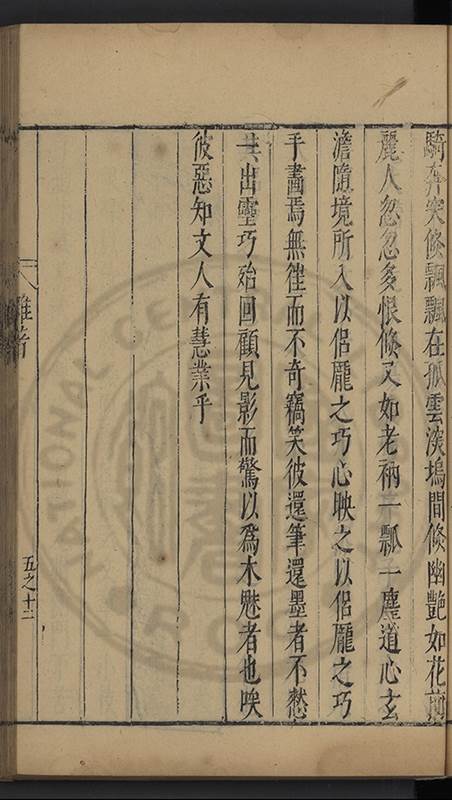 騎奔突倏飄飄在孤雲深塢間倏幽艷如花前
麗人忽忽多恨倏又如老衲一瓢一麈道心玄
澹隨境所入以侶龐之巧心映之以侶龐之巧
手畫焉無徃而不奇竊笑彼還筆還墨者不愁
其出靈巧殆回顧見影而驚以為木魅者也唉
彼惡知文人有慧業乎
五之十二